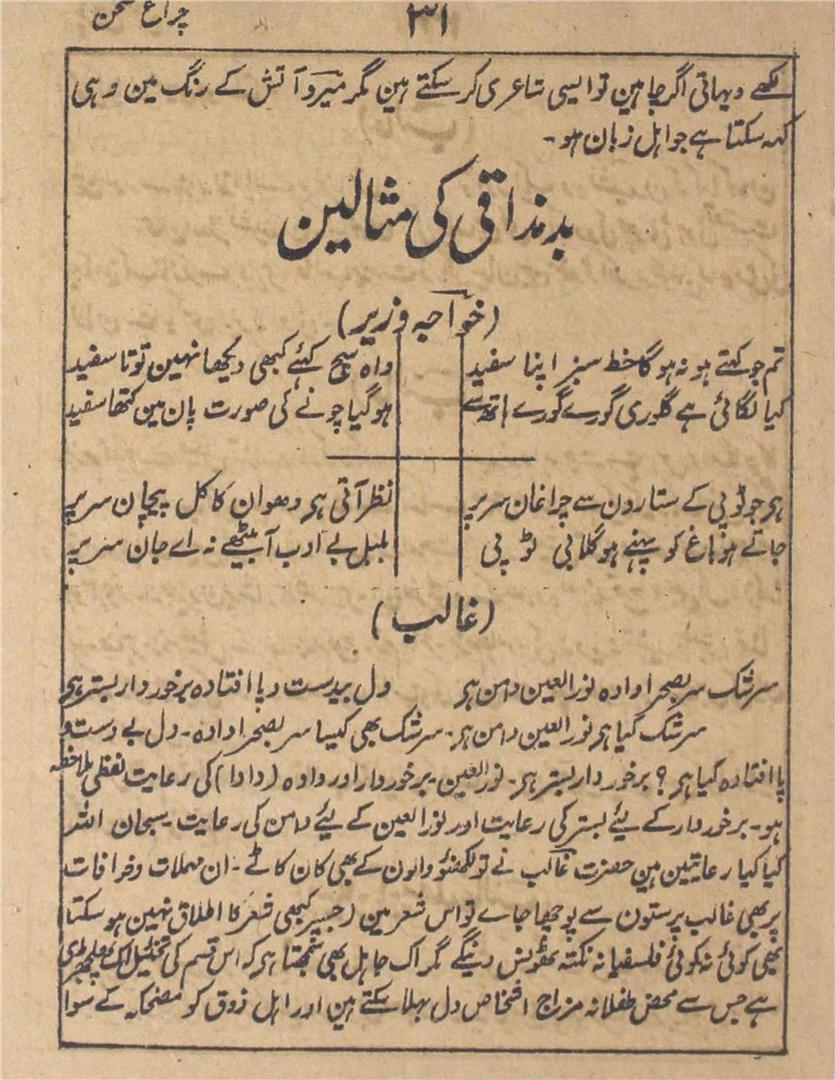 چراغ سخن
۳۱
لکھے دیہاتی اگر چاہین تو ایسی شاعری کر سکتے ہین مگر میر و آتش کے رنگ مین وہی
کہہ سکتا ہے جو اہل زبان ہو۔
بد مذاقی کی مثالین
(خواجہ وزیر)
تم جو کہتے ہو نہ ہو گا خط سبز اپنا سفید واہ سچ کہئے کبھی دیکھا نہین توتا سفید
کیا لگائی ہے گلوری گورے گورے ہاتھ سے ہو گیا چونے کی صورت پان مین کتھا سفید
ہی جو ٹوپی کے ستارون سے چراغان سر پر نظر آتی ہی دھوان کاکل پیچان سر پر
جاتے ہو باغ کو پہنے ہو گلابی ٹوپی بلبل بے ادب آ بیٹھے نہ اے جان سر پر
(غالب)
سرشک سر بصحرا دادہ نور العین دامن ہی دل بیدست و پا افتادہ برخوردار بستر ہی
سرشک کیا ہی نور العین دامن ہی۔ سرشک بھی کیسا سر بصحرا دادہ۔ دل بے دست و
پا افتادہ کیا ہی؟ برخوردار بستر ہی۔ نور العین۔ برخوردار اور دادہ (دادا) کی رعایت لفظی ملاحظہ
ہو۔ برخوردار کے لیئے بستر کی رعایت اور نور العین کے لیئے دامن کی رعایت۔ سبحان اللہ
کیا کیا رعایتین ہین حضرت غالب نے تو لکھنؤ والون کے بھی کان کاٹے۔ ان مہملات و خرافات
پر بھی غالب پرستون سے پوچھا جاے تو اس شعر مین (جسپر کبھی شعر کا اطلاق نہین ہو سکتا)
بھی کوئی نہ کوئی فلسفیانہ نکتہ ٹھونس دینگے مگر اک جاہل بھی سمجھتا ہی کہ اس قسم کی تخئیل اک
ہے جس سے محض طفلانہ مزاج اشخاص دل بہلا سکتے ہین اور اہل ذوق کو مضحکہ کے سوا